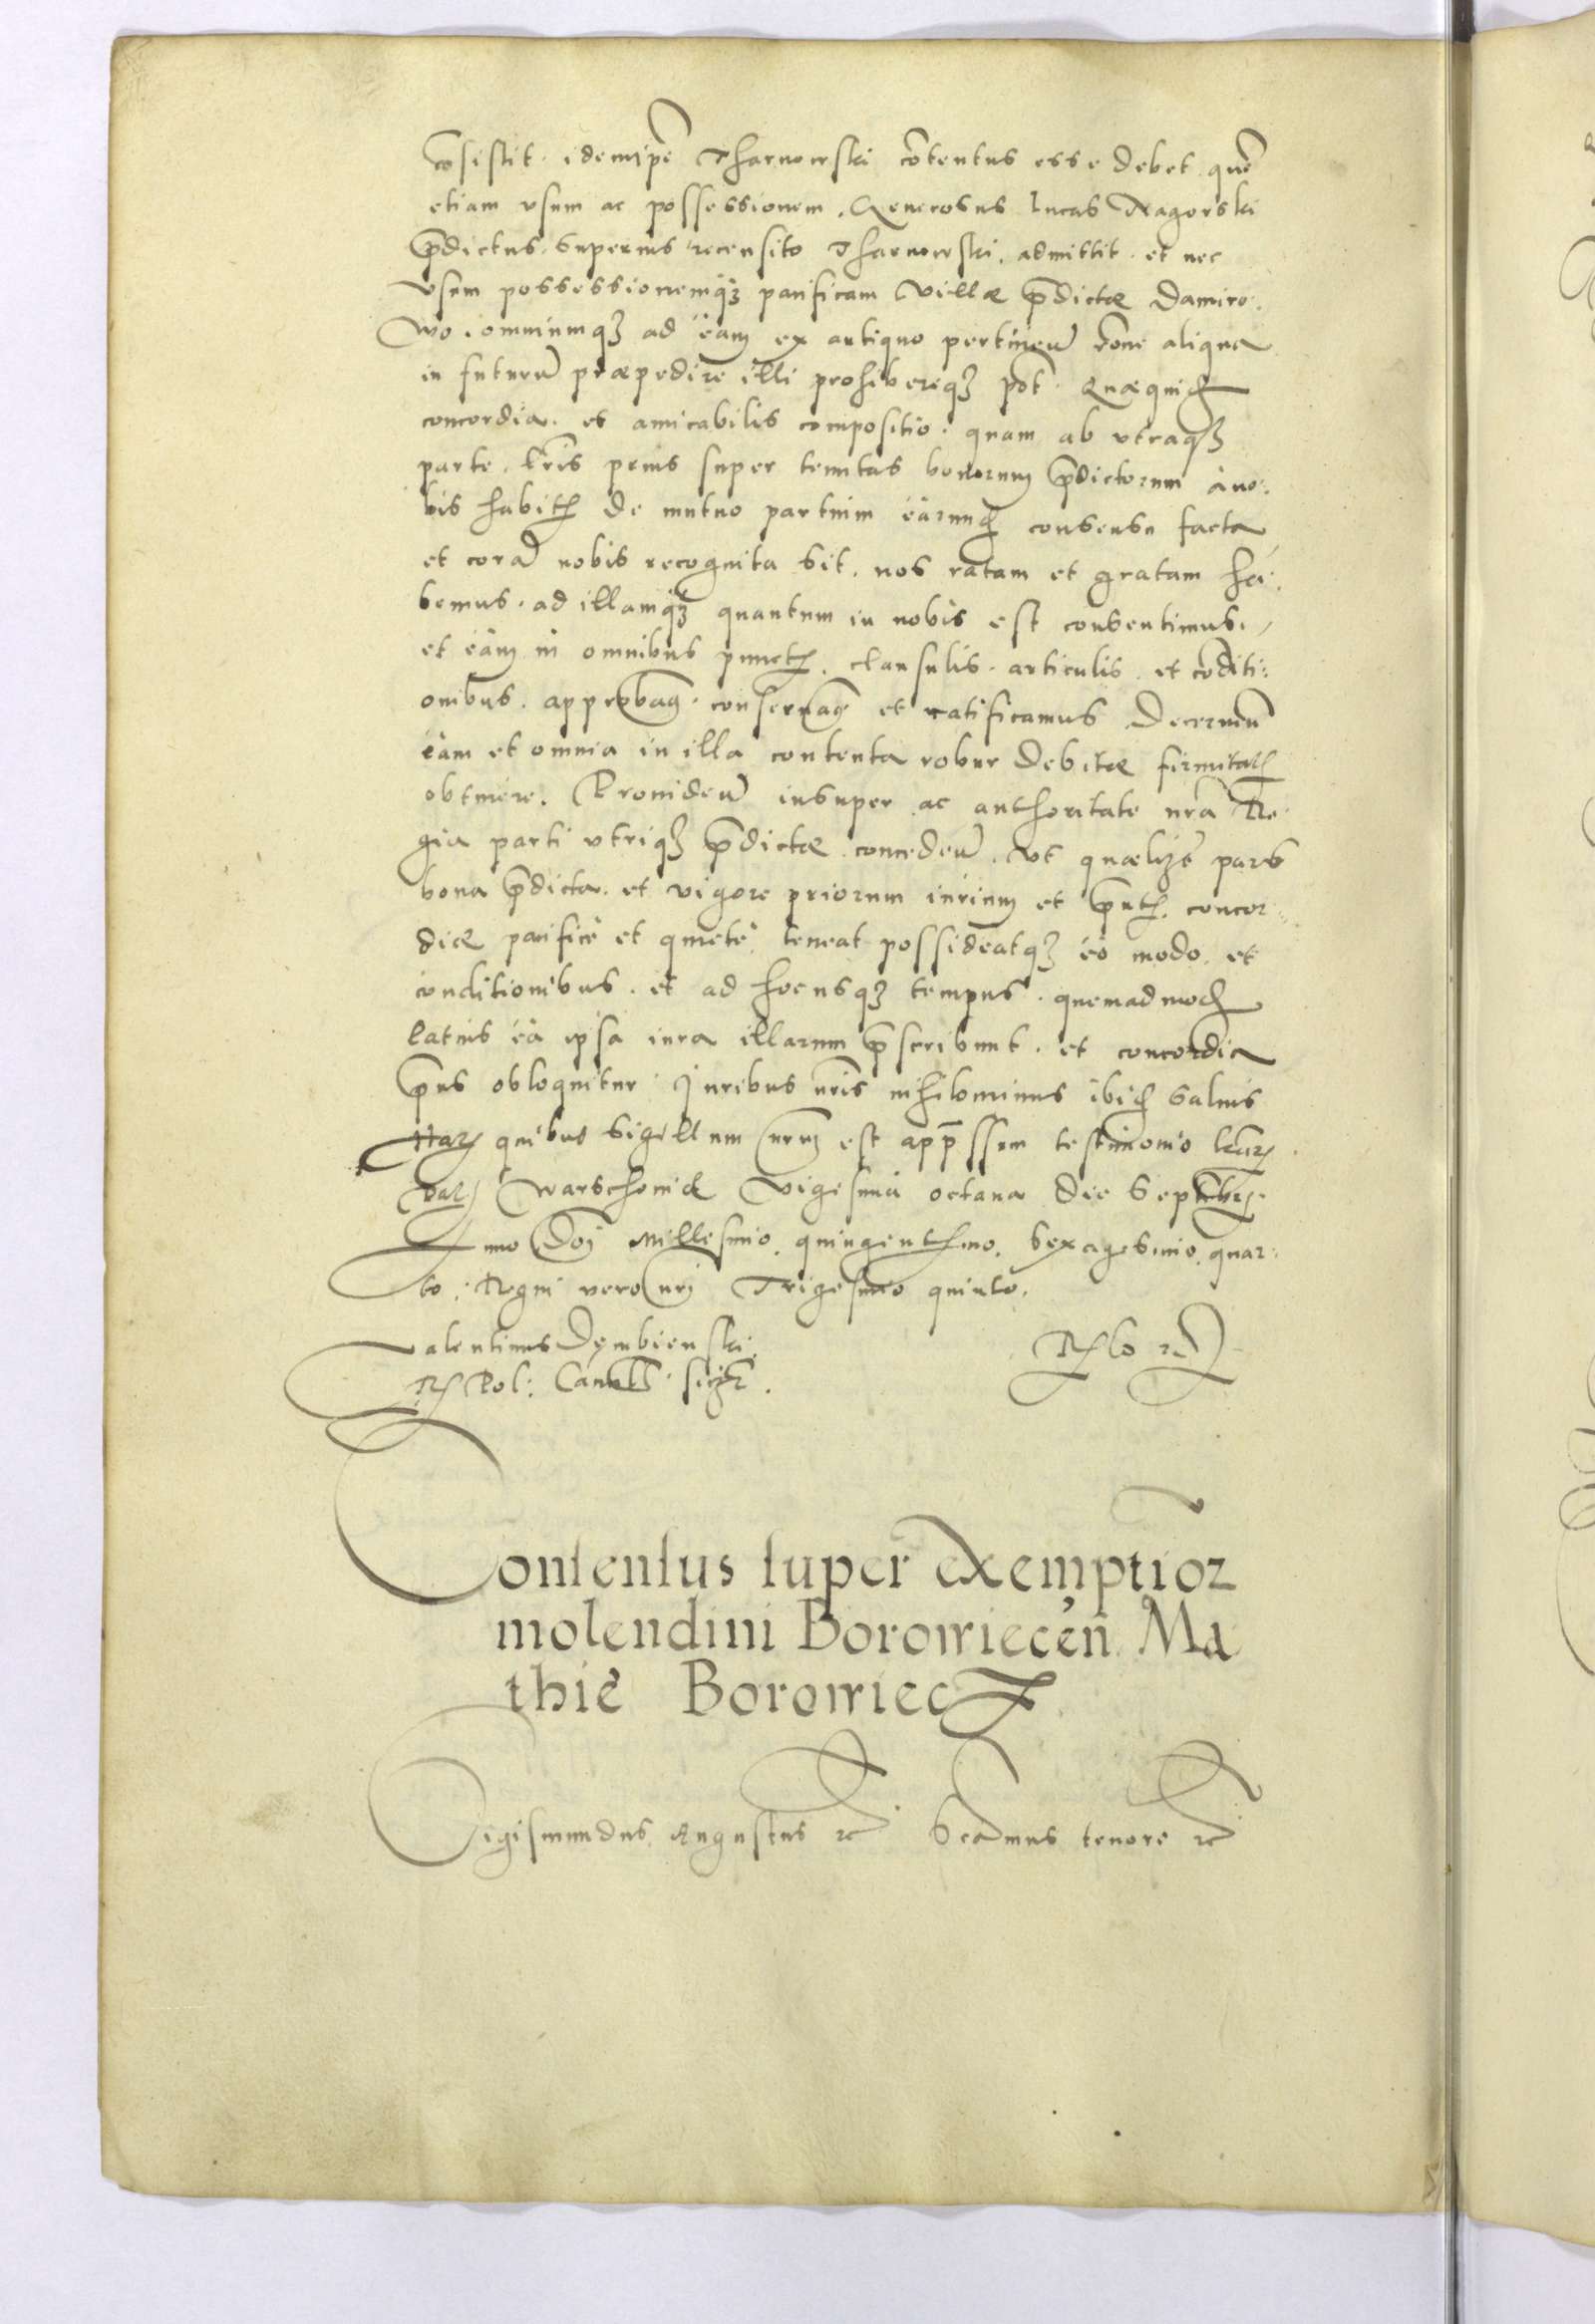 cōsistit. idemipē Tharnowski cōtentus esse debet quē
etiam vsum ac possessionem. Generosus lucas Nagorski
p̄dictus. superius recensito Tharnowski. admittit. et nec
vsum possessionemqȝ pacificam Villæ p̄dictæ Damiro:
wo. omniumqȝ ad eam ex antiquo pertineñ rōne aliqua
in futurū præpedire illi prohibereqȝ pōt. Quæquid
concordia. et amicabilis compositio. quam ab vtraqȝ
parte. lr̄is prius super tenutas bonorum p̄dictorum à no:
bis habitis de mutuo partium earund consensu facta
et corā nobis recognita sit. nos ratam et gratam ha:
bemus. ad illamqȝ quantum in nobis est consentimus.
et eam in omnibus punctis. clausulis. articulis. et cōditi:
onibus. approbam̄. conseruam̄ et ratificamus Decerneñ
eam et omnia in illa contenta robur debitæ firmitatis
obtinere. Prouideñ insuper ac authoritate nr̄a Re:
gia parti vtriqȝ p̄dictæ concedeñ. Vt quælibet pars
bona p̄dicta. et vigore priorum iurium et p̄ntis. concor:
diæ pacificè et quietè teneat possideatqȝ eo modo. et
conditionibus. et ad hocusqȝ tempus. quemadmod
latius ea ipsa iura illarum p̄scribunt. et concordia
p̄ns obloquitur. Juribus nr̄is nihilominus ibid saluis
Harȝ quibus sigillum nrm̄ est app̄ssum testimonio lrarȝ
Datȝ Warschouiæ Vigesima octaua die Septembrȝ.
Anno Dnj Millesimo. quingentesimo. sexagesimo. quar:
to. Regni vero nrj Trigesimo quinto.
Valentinus Dęmbienski.
R Pol: Cancell:
Consensus super exemptioe
molendini Borowiecen̄ Ma
thie Borowiec
Sigismundus Augustus rc̄ Significamus tenore rc̄